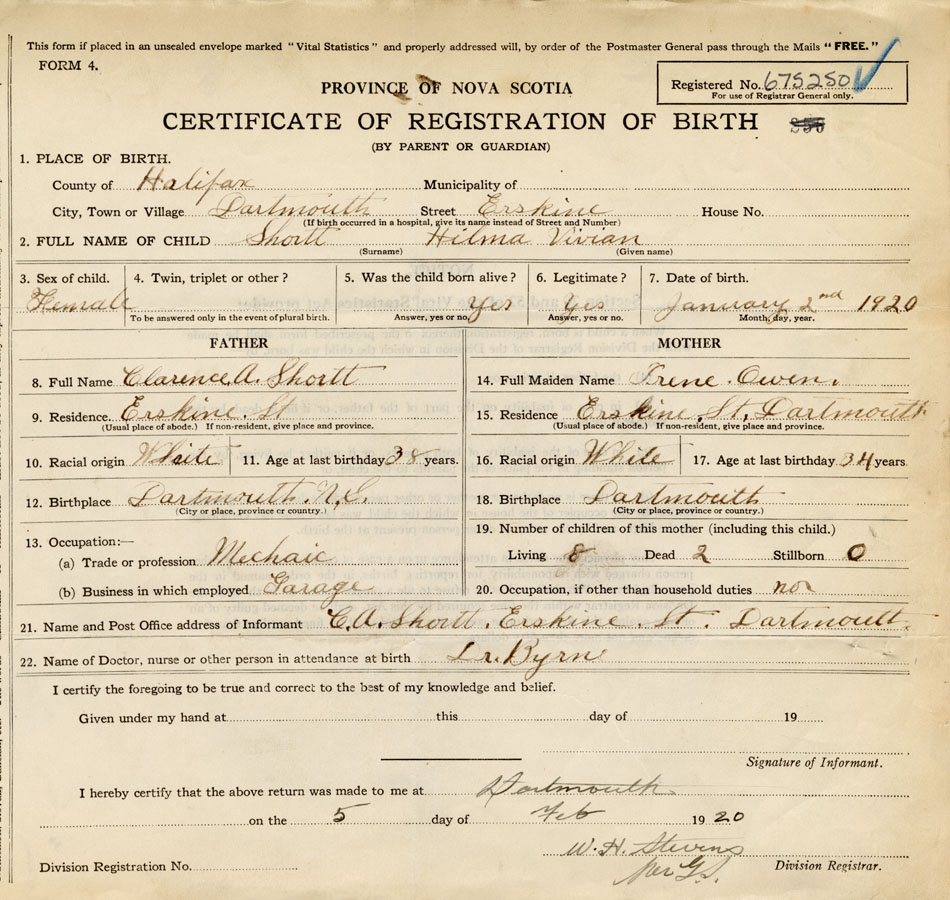 This form if placed in an unsealed envelope marked "Vital Statistics" and properly addressed will, by order of the Postmaster General pass through the Mails "FREE."
FORM 4.
Registered No. 675250
For use of Registrar General only.
PROVINCE OF NOVA SCOTIA
CERTIFICATE OF REGISTRATION OF BIRTH
(BY PARENT OR GUARDIAN)
1. PLACE OF BIRTH.
County of Halifax Municipality of
City, Town or Village Dartmouth Street Erskine House No.
(If birth occurred in a hospital, give its name instead of Street and Number)
2. FULL NAME OF CHILD Shortt Hilma Vivian
(Surname) (Given name)
3. Sex of child. 4. Twin, triplet or other? 5. Was the child born alive? 6. Legitimate? 7. Date of birth.
Female Yes Yes January 2nd 1920
To be answered only in the event of plural birth. Answer, yes or no. Answer, yes or no. Month, day, year.
FATHER MOTHER
8. Full Name Clarence A. Shortt 14. Full Maiden Name Irene Owen.
9. Residence. Erskine St 15. Residence Erskine St, Dartmouth
(Usual place of abode.) If non-resident, give place and province. (Usual place of abode.) If non-resident, give place and province.
10. Racial origin White 11. Age at last birthday 38 years. 16. Racial origin White 17. Age at last birthday 34 years.
12. Birthplace Dartmouth. N.S. 18. Birthplace Dartmouth
(City or place, province or country.) (City or place, province or country.)
13. Occupation:— 19. Number of children of this mother (including this child.)
(a) Trade or profession Mechaic Living 8 Dead 2 Stillborn 0
(b) Business in which employed Garage 20. Occupation, if other than household duties
21. Name and Post Office address of Informant C.A. Shortt. Erskine St. Dartmouth.
22. Name of Doctor, nurse or other person in attendance at birth Dr. Byrne
I certify the foregoing to be true and correct to the best of my knowledge and belief.
Given under my hand at this day of 19
Signature of Informant.
I hereby certify that the above return was made to me at Dartmouth
on the 5 day of Feb 1920
W. H. Stevens
Division Registration No. Division Registrar.